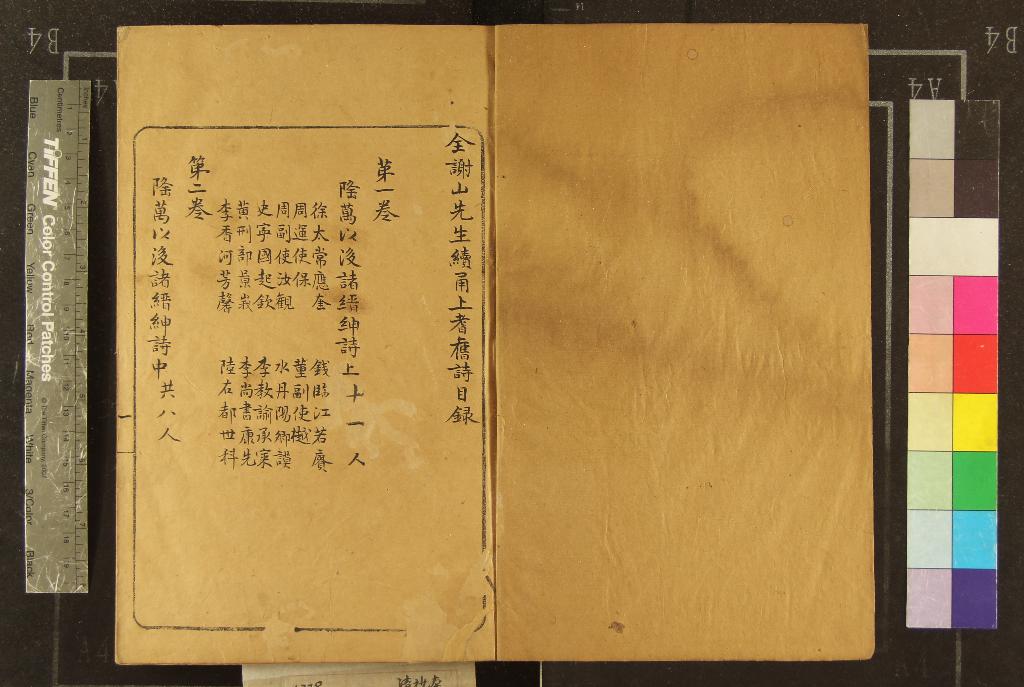 全謝山先生續甬上耆舊詩目錄
第一卷
隆萬以後諸縉紳詩上十一人
徐太常應奎 錢臨江若賡
周運使保 董副使樾
周副使汝觀 水丹陽鄉謨
史寧國起欽 李教諭承寀
黄刑部景峩 李尚書康先
李香河芳馨 陸右都世科
第二卷
隆萬以後諸縉紳詩中共八人
一
TIFFEN Color Control Patches
Centimetres
Inches
Blue
Cyan
Green
Yellow
Red
Magenta
White
3/Color
Black
B4
A4
B4
A4